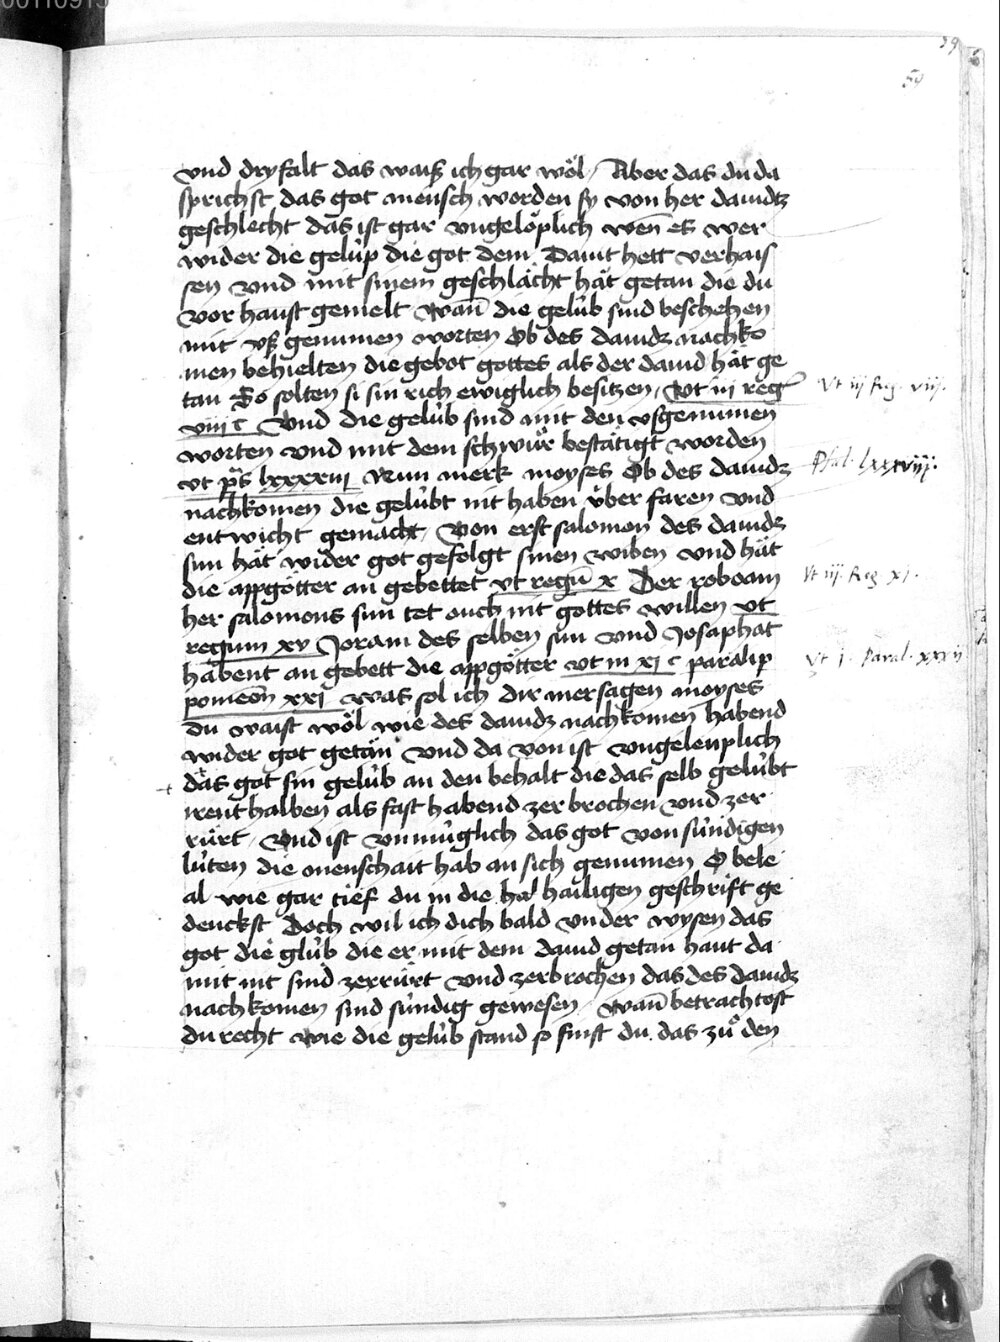 59
59
vnd dryfalt das waiß ich gar wöl / Aber das du da
sprichst das got mensch worden sy von her dauidtz
geschlecht das ist gar vngelöplich wen̄ es wer
wider die gelüp die got dem Dauit hett verhais
sen vnd mit sinem geschlächt hät getan die du
vor haust gemelt wan̄ die gelüb sind beschehen
mit vß genumen worten Ob des dauidz nachko
men behielten die gebot gottes als der dauid hät ge
tan So solten si sin rich ewiglich besitzen / Vt iii reg
Vt iij Reg. viij.
viii c Vnd die gelüb sind mit den vsgenumen
worten vnd mit dem schwür bestätigt worden
Psal. lxxxviij.
vt ps lxxxxiii Nun merk moyses Ob des dauidz
nachkomen die gelübt nit haben über faren vnd
entwicht gemacht / Von erst salomon des dauidz
sun hät wider got gefolgt sinen wiben vnd hät
die appgötter an gebettet vt regū x Der roboam
Vt iij. Reg xj.
her salomons sun tet ouch nit gottes willen vt
regum xv Joram des selben sun vnd Josaphat
Vt j. Paral. xxvij
habent an gebett die appgötter vt in xi c paralip
pomeon̄ xxi was sol ich dir mer sagen moyses
du waist wöl wie des dauidz nachkomen habend
wider got getän vnd da von ist vngelenplich
das got sin gelüb an den behalt die das selb gelübt
irenthalben als fast habend zerbrochen vnd zer
rürt / Vnd ist vnmüglich das got von sündigen
lüten die menschait hab an sich genumen O bele
al wie gar tief du in die ha hailigen geschrift ge
denckst Doch wil ich dich bald vnder wysen das
got die glüb die er mit dem dauid getan haut da
mit nit sind zerrürt vnd zerbrochen das des dauidz
nachkomen sind sündig gewesen / wan̄ betrachtost
du recht wie die gelüb stand so finst du das zů den